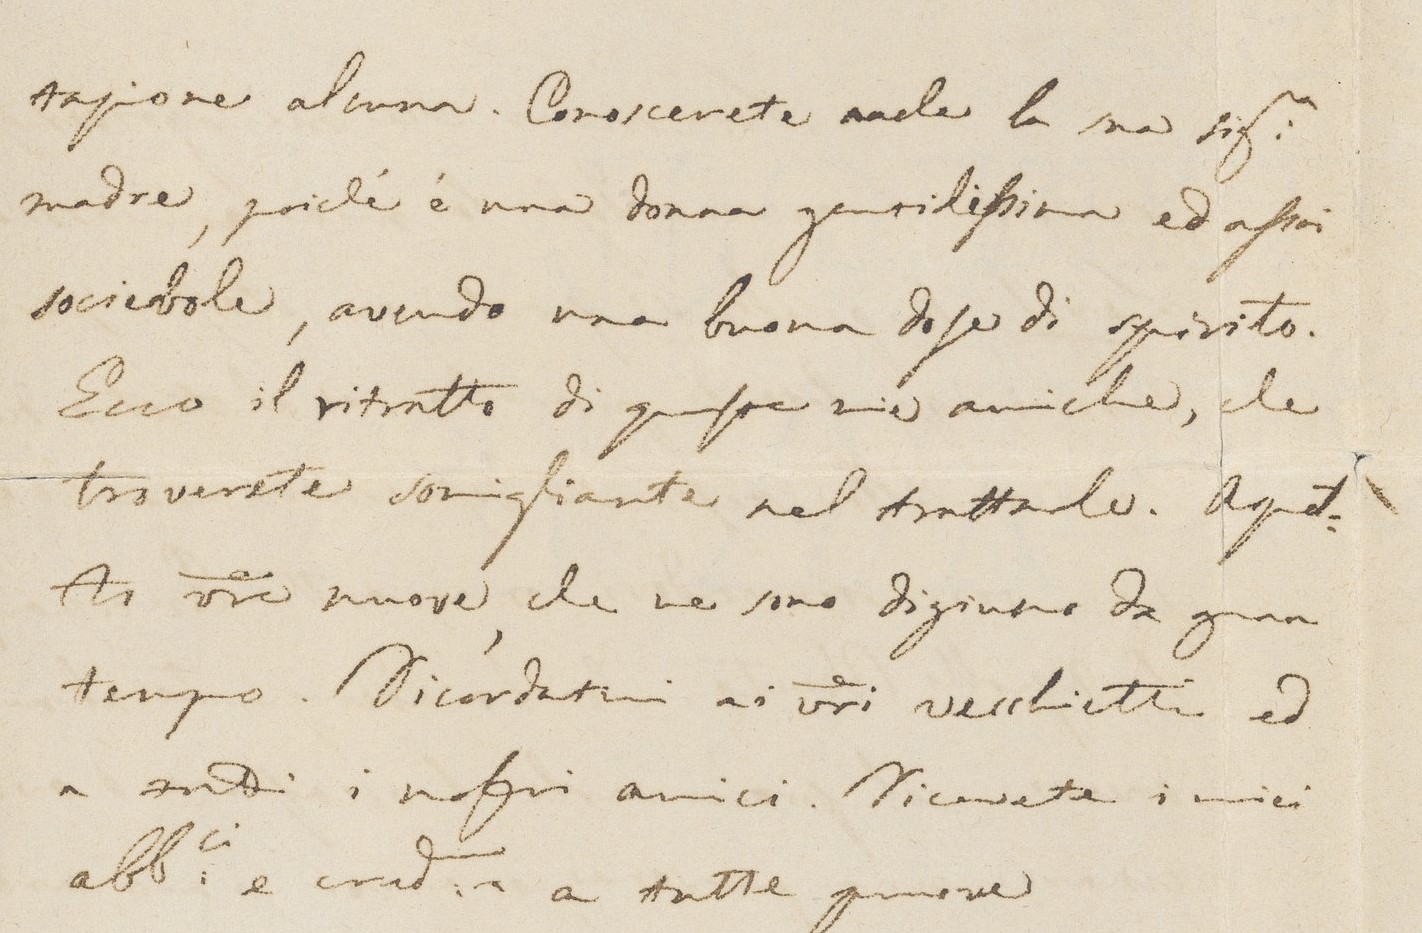 ragione alcuna. Conoscerete anche la sua sig:ra
madre, poiché é una donna gentilissima ed assai
sociebole, avendo una buona dose di spirito.
Ecco il ritratto di queste mie amiche, che
troverete somigliante nel trattarle. Aspet=
to vr̃e nuove, che ne sono digiuno da gran
tempo. Ricordatemi ai vr̃i vecchietti ed
a tutti i nostri amici. Ricevete i miei
abb:ci e a tutte prove